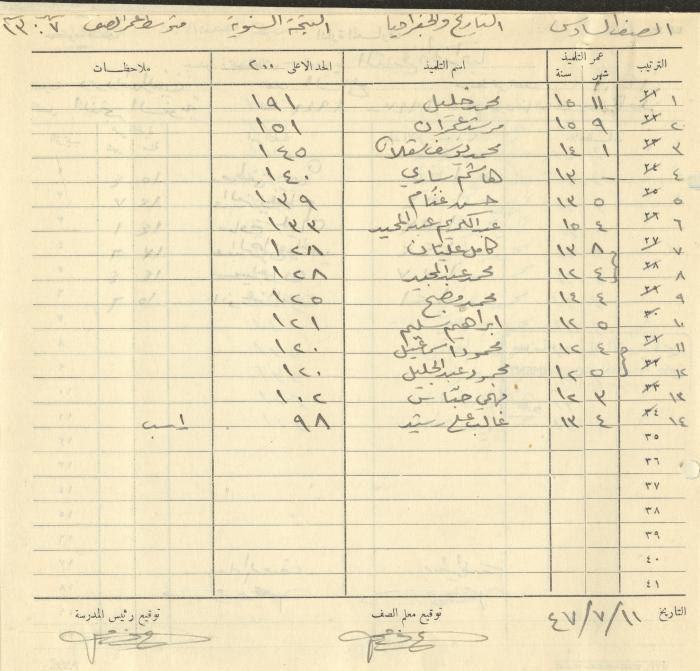 الصف السادس التاريخ والجغرافيا النتيجة السنوية متوسط عمر الصف ١٣:٧
الترتيب عمر التلميذ شهر سنة اسم التلميذ الحد الاعلى ٢٠٠ ملاحظات
١ ١١ ١٥ محمد خليل ١٩١
٢ ٩ ١٥ مرشد عمران ١٥١
٣ ١ ١٤ محمد يوسف ١٤٥
٤ - ١٣ هاشم ساري ١٤٠
٥ ٥ ١٣ حسن غنام ١٣٩
٦ ٤ ١٥ عبد الكريم عبد المجيد ١٣٣
٧ ٨ ١٣ كامل عليان ١٢٨
٨ ٤ ١٢ محمد عبد المجيد ١٢٨
٩ ٤ ١٤ محمد مصلح ١٢٥
١٠ ٥ ١٢ ابراهيم سليم ١٢١
١١ ٤ ١٢ محمود اسماعيل ١٢٠
١٢ ٥ ١٢ محمود عبد الجليل ١٢٠
١٣ ٣ ١٢ فهمي ١٠٢
١٤ ٤ ١٣ غالب علي رشيد ٩٨ راسب
٣٥
٣٦
٣٧
٣٨
٣٩
٤٠
٤١
التاريخ ١١/٧/٤٧ توقيع معلم الصف توقيع رئيس المدرسة